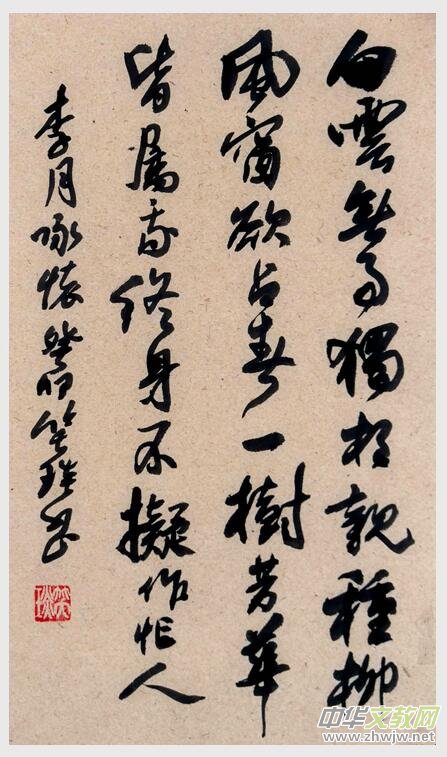 白雲無事獨相親種柳
風窗欲占春一樹芳華
皆屬我終身不擬作忙人
李月啄懷癸卯書
中华文教网
www.zhwjw.net